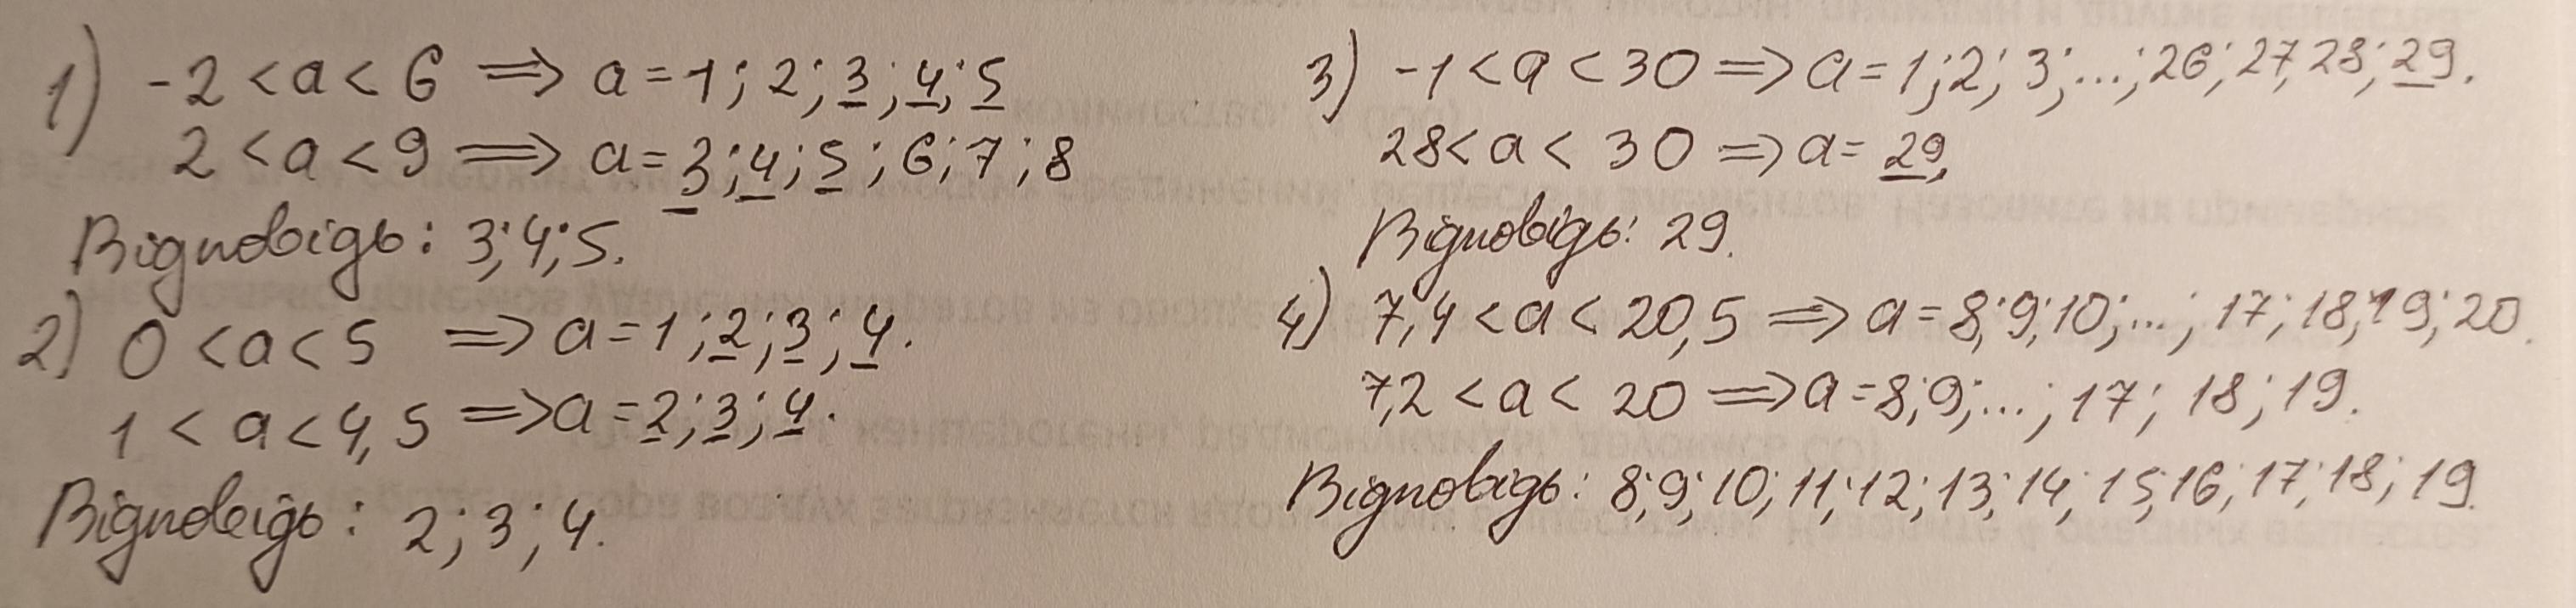 1) -2 < a < 6 => a = 1; 2; 3; 4; 5
2 < a < 9 => a = 3; 4; 5; 6; 7; 8
Відповідь: 3; 4; 5.
2) 0 < a < 5 => a = 1; 2; 3; 4.
1 < a < 4,5 => a = 2; 3; 4.
Відповідь: 2; 3; 4.
3) -1 < a < 30 => a = 1; 2; 3; ...; 26; 27; 28; 29.
28 < a < 30 => a = 29.
Відповідь: 29.
4) 7,4 < a < 20,5 => a = 8; 9; 10; ...; 17; 18; 19; 20.
7,2 < a < 20 => a = 8; 9; ...; 17; 18; 19.
Відповідь: 8; 9; 10; 11; 12; 13; 14; 15; 16; 17; 18; 19.